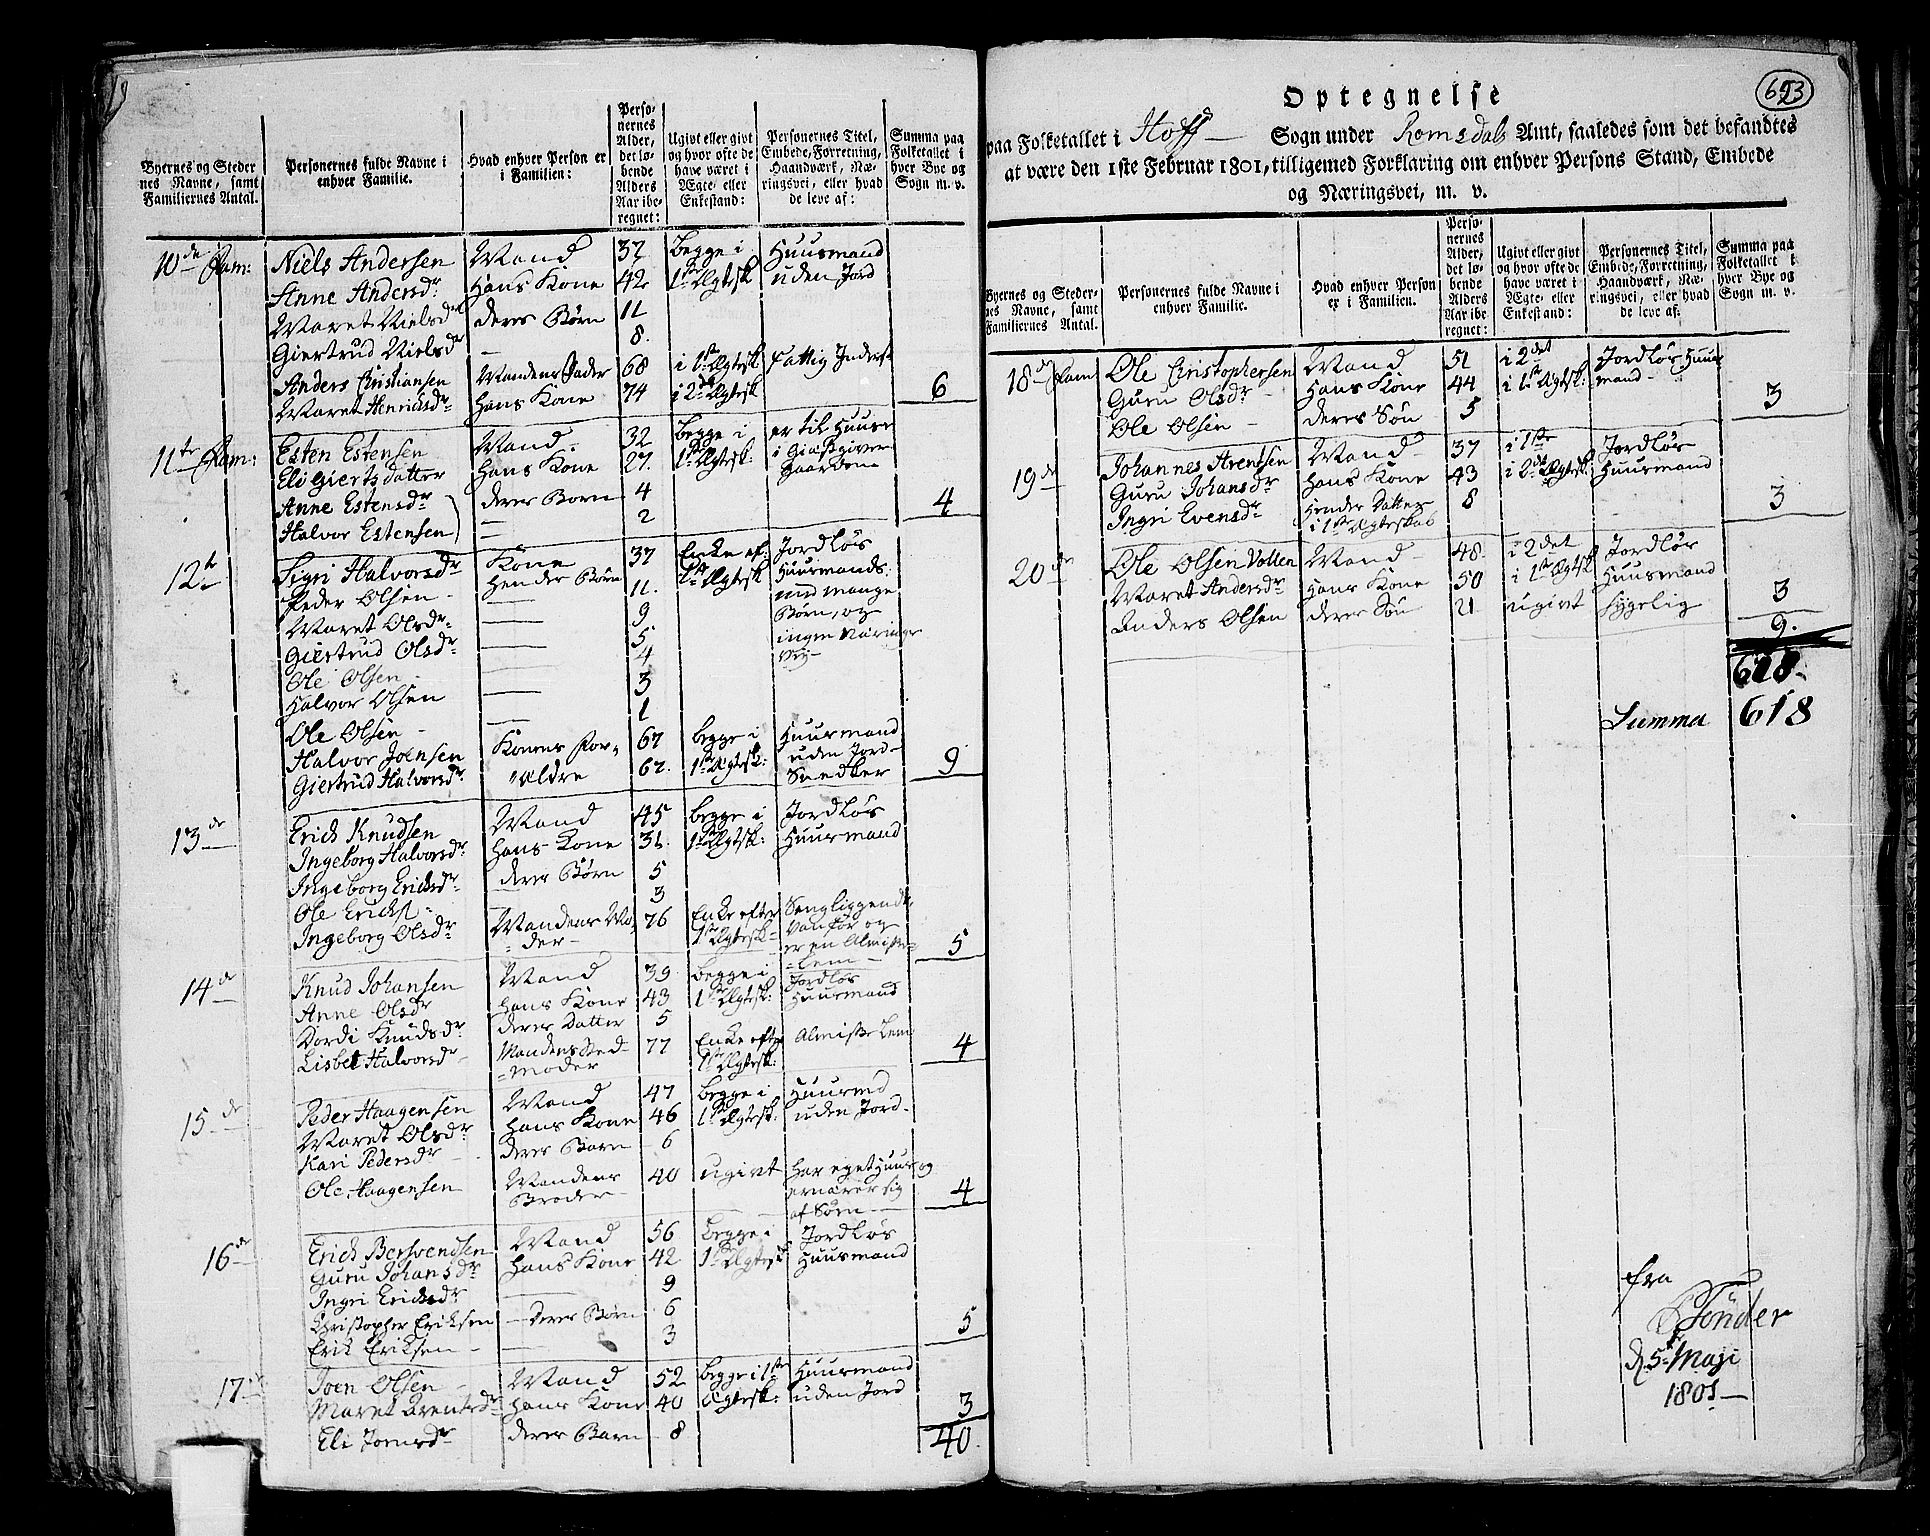 Byernes og Steder
nes Navne, samt
Familiernes Antal.
Personernes fulde Navne i
enhver Familie.
Hvad enhver Person er
i Familien:
Perso-
nernes
Alder,
det lø-
bende
Alders
Aar ibe-
regnet:
Ugivt eller givt
og hvor ofte de
have været i
Ægte- eller
Enkestand:
Personernes Titel,
Embede, Forretning,
Haandværk, Næ-
ringsvei, eller hvad
de leve af:
Summa paa
Folketallet i
hver Bye og
Sogn m. v.
10de Fam: Niels Andersen Mand 37 begge i Huusmand
Anne Andersdr Hans Kone 42 1ste Ægtesk uden Jord
Maret Nielsdr deres Børn 11
Giertrud Nielsdr — 8.
Anders Christiansen Mandens Fader 68 i 1ste Ægtesk Fattig Inderst
Maret Henricsdr Hans Kone 74 i 2det Ægtesk 6
11te Fam: Esten Estensen Mand 32 begge i er til Huuse
Eli Giertsdatter Hans Kone 27. 1ste Ægtesk: i Giæstgiver
Gaarden
Anne Estensdr deres Børn 4
Halvor Estensen — 2 4
12te Sigri Halvorsdr Kone 37 Enke af Jordløs
Peder Olsen Hendes Børn 11. 1ste Ægtesk Huusmands
Maret Olsdr — 9 med mange
Giertrud Olsdr — 5 Børn, og
Ole Olsen — 4 ingen Nærings
Halvor Olsen — 3 Vej
Ole Olsen — 1
Halvor Joensen Konens For- 67 begge i Huusmand
Giertrud Halvorsdr ældre 62. 1ste Ægtesk: uden Jord
Snedker 9
13de Erich Knudsen Mand 45 begge i Jordløs
Ingeborg Halvorsdr Hans Kone 31. 1ste Ægtesk: Huusmand
Ingeborg Ericksdr deres Børn 5
Ole Ericks. — 3
Ingeborg Olsdr Mandens Mo- 76 Enke efter Sengliggende,
der 1ste Ægtesk Vanfør og
er en Almisse-
Lem 5
14de Knud Johansen Mand 39 begge i Jordløs
Anne Olsdr Hans Kone 43 1ste Ægtesk: Huusmand
Dordi Knudsdr deres Datter 5
Lisbet Halvorsdr Mandens Sted- 77 Enke efter Almisse Lem
Moder 1ste Ægtesk: 4
15de Peder Haagensen Mand 47 begge i Huusmd
Maret Olsdr Hans Kone 46 1ste Ægtesk: uden Jord
Kari Pedersdr deres Barn 6
Ole Haagensen Mandens 40 ugivt har eget Huus og
Broder ernærer sig
af Søen 4
16de Erich Bersvendsen Mand 56 begge i Jordløs
Guru Johansdr Hans Kone 42 1ste Ægtesk Huusmand
Ingri Ericksdr — 9
Christopher Eriksen — deres Børn 6
Erik Eriksen — 3 5
17de Joen Olsen Mand 52 begge i 1ste Huusmand
Maret Arentsdr Hans Kone 40 Ægtesk: uden Jord
Eli Joensdr deres Barn 8 3
40
653
Optegnelse
paa Folketallet i Hoff Sogn under Romsdals Amt, saaledes som det befandtes
at være den 1ste Februar 1801, tilligemed Forklaring om enhver Persons Stand, Embede
og Næringsvei, m. v.
Byernes og Steder-
nes Navne, samt
Familiernes Antal.
Personernes fulde Navne i
enhver Familie.
Hvad enhver Person
er i Familien.
Perso-
nernes
Alder,
det lø-
bende
Alders
Aar ibe-
regnet:
Ugivt eller givt
og hvor ofte de
have været i
Ægte- eller
Enkestand:
Personernes Titel,
Embede, Forretning,
Haandværk, Næ-
ringsvei, eller hvad
de leve af:
Summa paa
Folketallet i
hver Bye og
Sogn m. v.
18de Fam Ole Christophersen Mand 51 i 2det Jordløs Huus
Guru Olsdr Hans Kone 44 i 1ste Ægtesk: mand
Ole Olsen deres Søn 5 3
19de Johannes Arentsen Mand 37 i 1ste Jordløs
Guru Johansdr Hans Kone 43 i 2det Ægtesk. Huusmand
Ingri Evensdr Hendes Datter 8
i 1ste Ægteskab 3
20de Ole Olsen Volten Mand 48. i 2det Jordløs
Maret Andersdr Hans Kone 50 i 1ste Ægtsk Huusmand
Anders Olsen deres Søn 21 ugivt sygelig 3
9.
618.
Summa 618
fra
Tönder
d. 5te Maji
1801